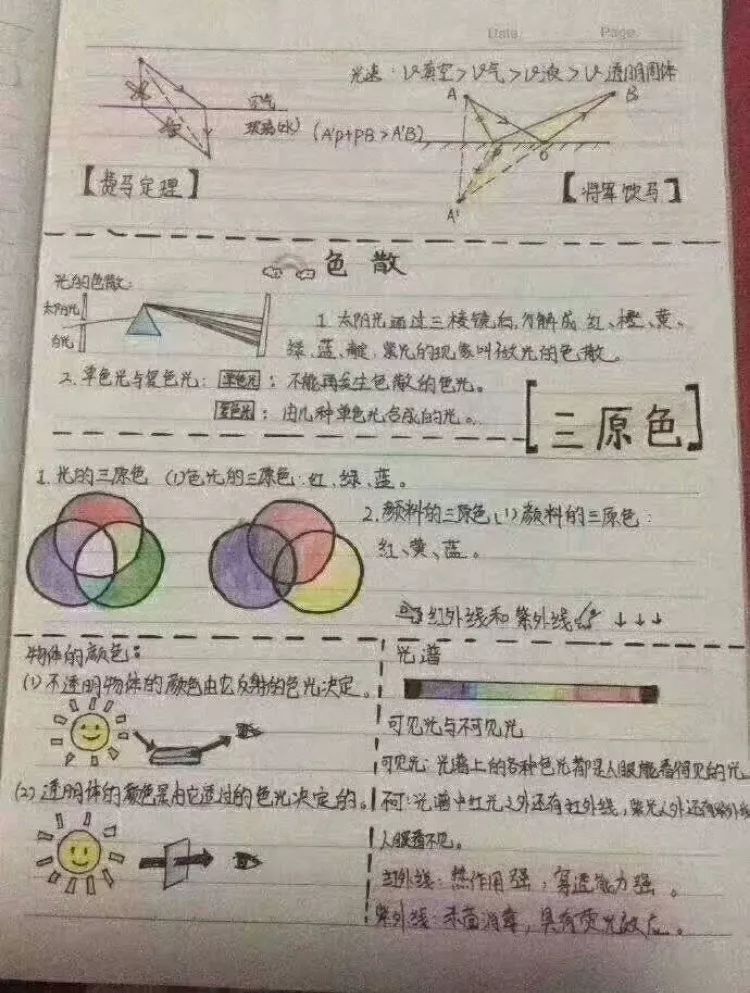 Date    Page
光速：V真空＞V气＞V液＞V透明固体
A    B
空气
玻璃(水)
(A'P+PB＞A'B)
P    O
【费马定理】
【将军饮马】
A'
色散
光的色散：
太阳光
白光
1. 太阳光通过三棱镜后，分解成 红、橙、黄、
绿、蓝、靛、紫光的现象叫做光的色散。
2. 单色光与复色光：单色光：不能再发生色散的色光。
复色光：由几种单色光合成的光。
[三原色]
1. 光的三原色 (1)色光的三原色：红、绿、蓝。
2. 颜料的三原色 (1)颜料的三原色：
红、黄、蓝。
红外线和紫外线 ↓↓↓
物体的颜色：
(1) 不透明物体的颜色由它反射的色光决定。
(2) 透明体的颜色是由它透过的色光决定的。
光谱
可见光与不可见光
可见光：光谱上的各种色光都是人眼能看得见的光。
不可：光谱中红光之外还有红外线，紫光之外还有紫外线
人眼看不见。
红外线：热作用强；穿透能力强。
紫外线：杀菌消毒，具有荧光效应。